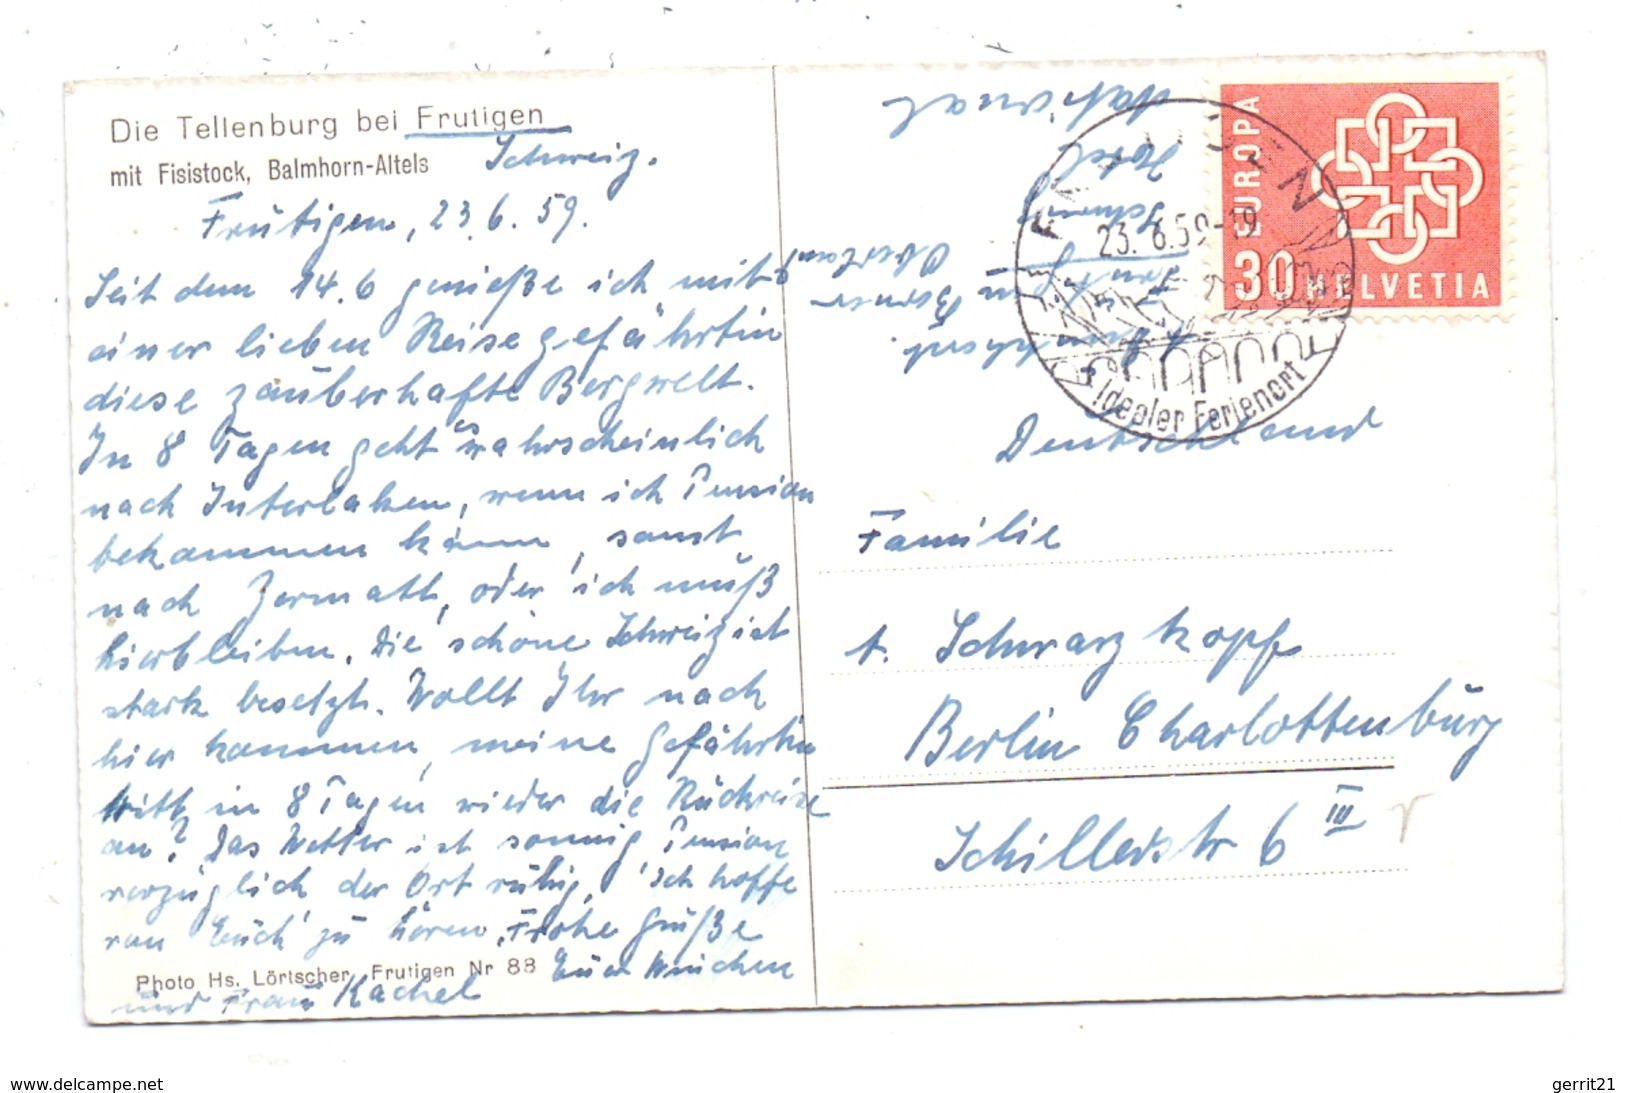 Die Tellenburg bei Frutigen
mit Fisistock, Balmhorn-Altels
Schweiz.
Frutigen, 23.6.59.
Seit dem 14.6 genieße ich mit
einer lieben Reisegefährtin
diese zauberhafte Bergwelt.
In 8 Tagen geht es wahrscheinlich
nach Interlaken, wenn ich Pension
bekommen kann, sonst
nach Zermatt, oder ich muß
hierbleiben. Die schöne Schweiz ist
stark besetzt. Wollt Ihr nach
hier kommen, meine Gefährtin
tritt in 8 Tagen wieder die Rückreise
an? Das Wetter ist sonnig Pension
vorzüglich der Ort ruhig, ich hoffe
von Euch zu hören, Frohe Grüße
Euer
und Frau Kachel
Photo Hs. Lörtscher, Frutigen Nr 88
National
Hotel
Schweiz
Frutigen
Berner Oberland
EUROPA
30 HELVETIA
23.6.59-19
Idealer Ferienort
Deutschland
Familie
t. Schwarzkopf
Berlin Charlottenburg
Schillerstr 6 III
www.delcampe.net
gerrit21